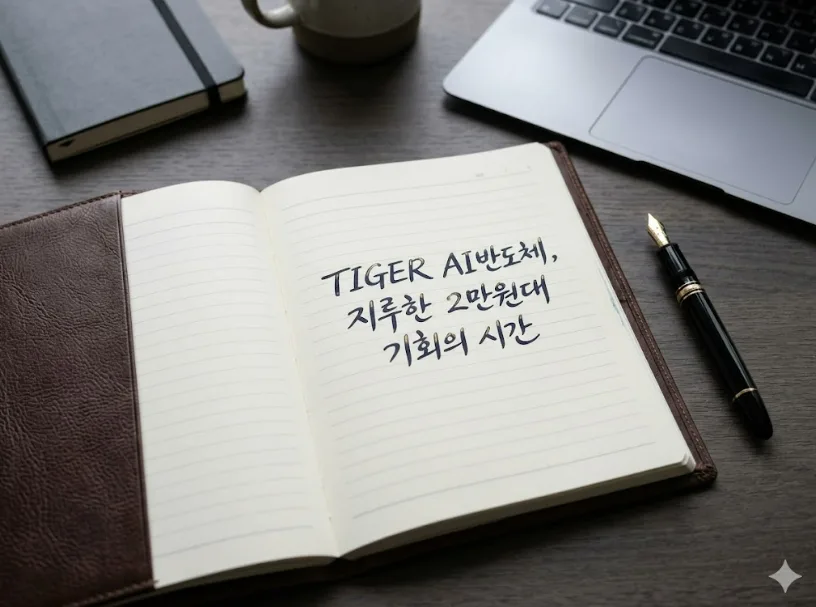 TIGER AI반도체,
지루한 2만원대
기회의 시간